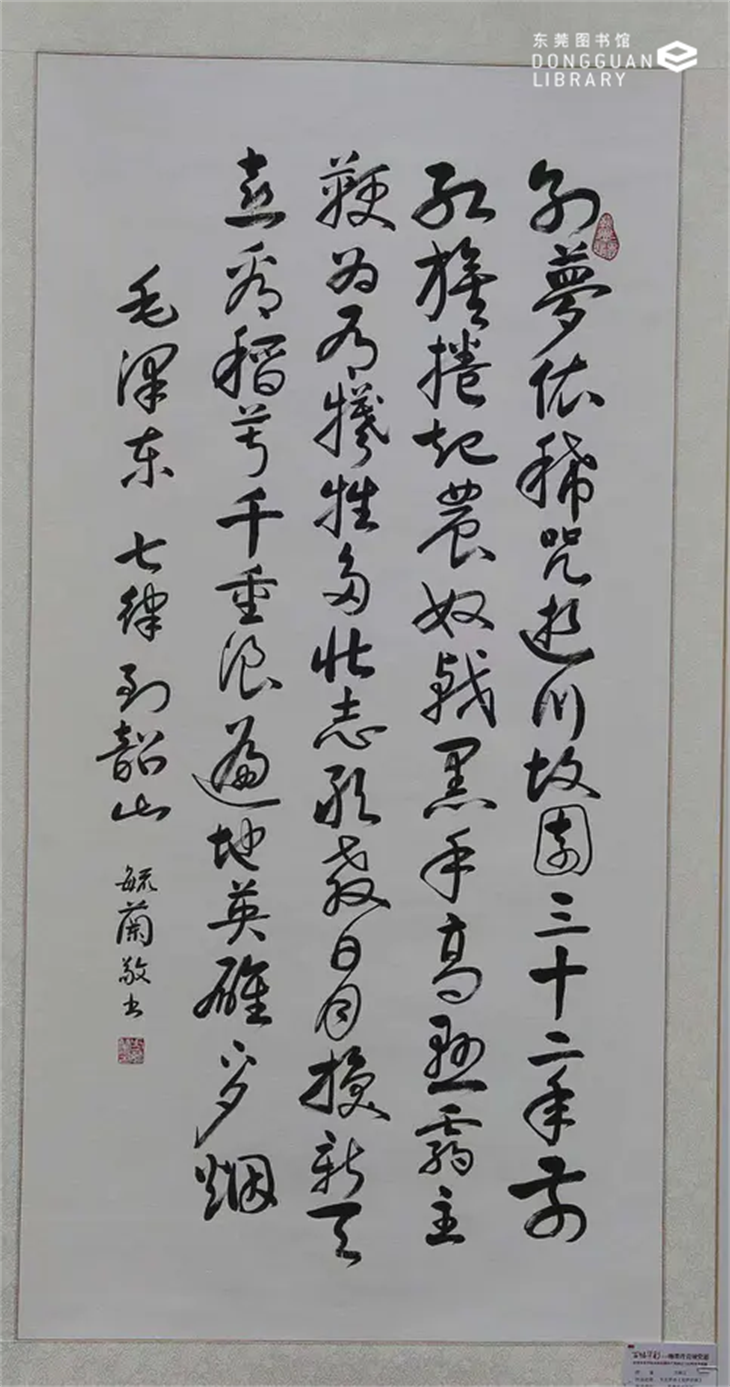 东莞图书馆
DONGGUAN
LIBRARY
别夢依稀咒逝川故園三十二年前
红旗捲起農奴戟黑手高悬霸主
鞭为有犧牲多壮志敢教日月换新天
喜看稻菽千重浪遍地英雄下夕烟
毛泽东 七律 到韶山 毓蘭敬书